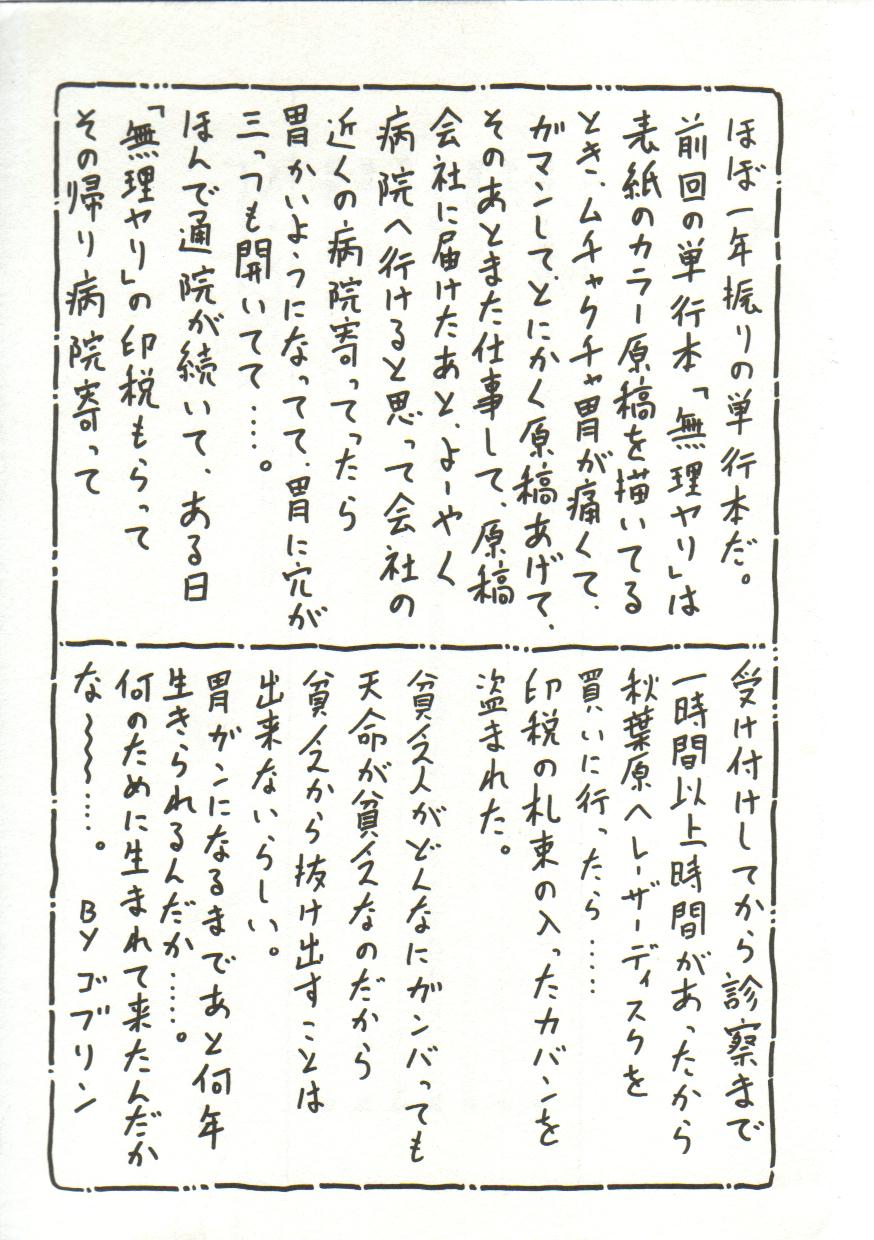 ほぼ一年振りの単行本だ。
前回の単行本「無理ヤリ」は
表紙のカラー原稿を描いてる
とき、ムチャクチャ胃が痛くて、
ガマンして、とにかく原稿あげて、
そのあとまた仕事して、原稿
会社に届けたあと、よーやく
病院へ行けると思って会社の
近くの病院寄ってったら
胃かいようになってて、胃に穴が
三っつも開いてて……。
ほんで通院が続いて、ある日
「無理ヤリ」の印税もらって
その帰り病院寄って
受け付けしてから診察まで
一時間以上時間があったから
秋葉原へレーザーディスクを
買いに行ったら……
印税の札束の入ったカバンを
盗まれた。
貧乏人がどんなにガンバっても
天命が貧乏なのだから
貧乏から抜け出すことは
出来ないらしい。
胃ガンになるまであと何年
生きられるんだか……。
何のために生まれて来たんだか
な〜〜〜……。 BY ゴブリン